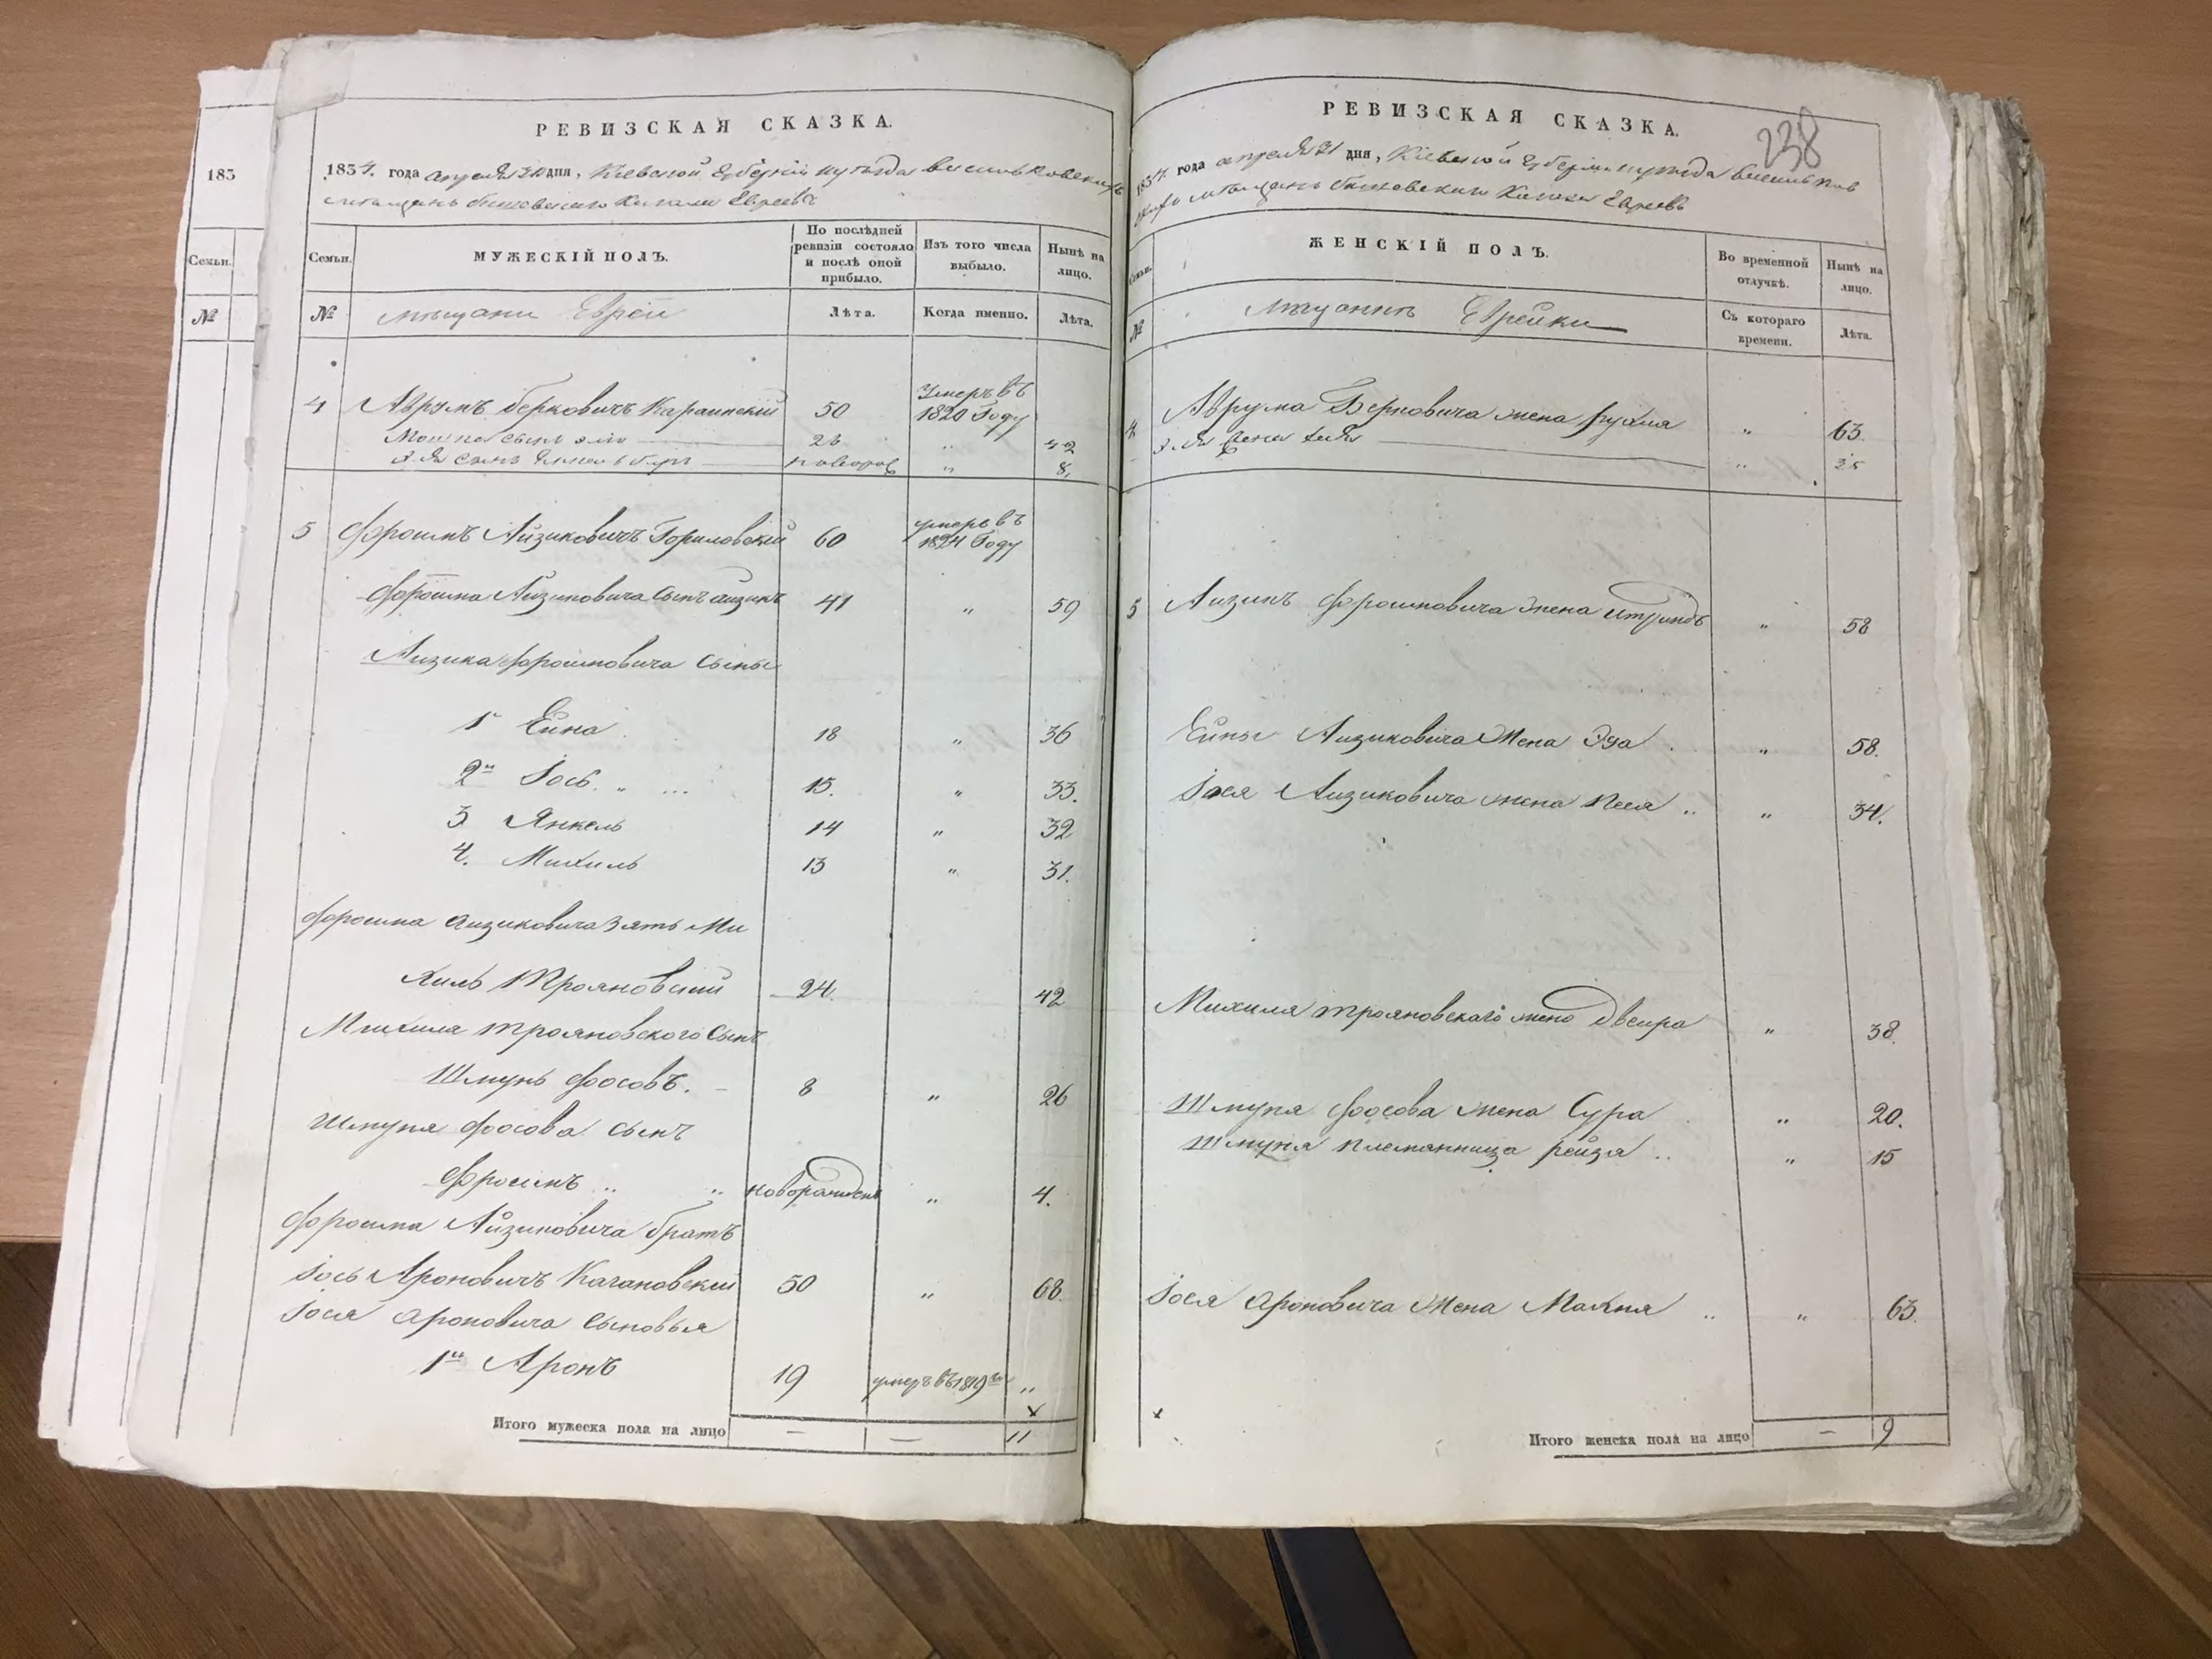 183
Семьи.
№
РЕВИЗСКАЯ СКАЗКА.
1834. года апреля дня, Кіевской Губерніи уезда
мѣщанъ Евреевъ
Семьи.
МУЖЕСКІЙ ПОЛЪ.
По послѣдней ревизіи состояло и послѣ оной прибыло.
Изъ того числа выбыло.
Нынѣ на лицо.
№
мѣщани Евреи
Лѣта.
Когда именно.
Лѣта.
4 Аврумъ Берковичъ 50 Умеръ въ 1820 Году
сынъ 42
сынъ новорож „ 8.
5 Фроимъ Айзиковичъ Гориловскій 60 умеръ въ 1824 Году
Фроима Айзиковича сынъ айзикъ 41 „ 59
Айзика Фроимовича сыны
1й Ейна 18 „ 36
2й Іось „ ... 15. „ 33.
3 Янкель 14 „ 32
4. Михиль 13 „ 31.
Фроима айзиковича зять Ми
хиль Трояновскій 24. 42
Михиля трояновского сынъ
Шмунь Фроовъ. 8 „ 26
Шмуня сынъ
Фроимъ .. .. новорожденъ „ 4.
Фроима Айзиковича братъ
Іось Ароновичъ Кагановскій 50 „ 68.
Іося ароновича сыновья
1й Аронъ 19 умеръ въ 1819 „
х
Итого мужеска пола на лицо — — 11
РЕВИЗСКАЯ СКАЗКА.
238
1834. года апреля дня, Кіевской Губерніи уезда
мѣщанъ Евреевъ
Семьи.
ЖЕНСКІЙ ПОЛЪ.
Во временной отлучкѣ.
Нынѣ на лицо.
№
мѣщанки Еврейки
Съ котораго времени.
Лѣта.
4 Аврума Берковича жена Рухля „ 63.
жена „
5 Айзика Фроимовича жена „ 58
Ейны Айзиковича жена Эда . „ 58.
Іося Айзиковича жена Песя .. „ 34.
Михиля трояновскаго жена Двейра „ 38.
Шмуня жена Сура „ 20.
Шмуня племянница рейзя .. „ 15
Іося ароновича жена Махня .. „ 63.
х
Итого женска пола на лицо — 9